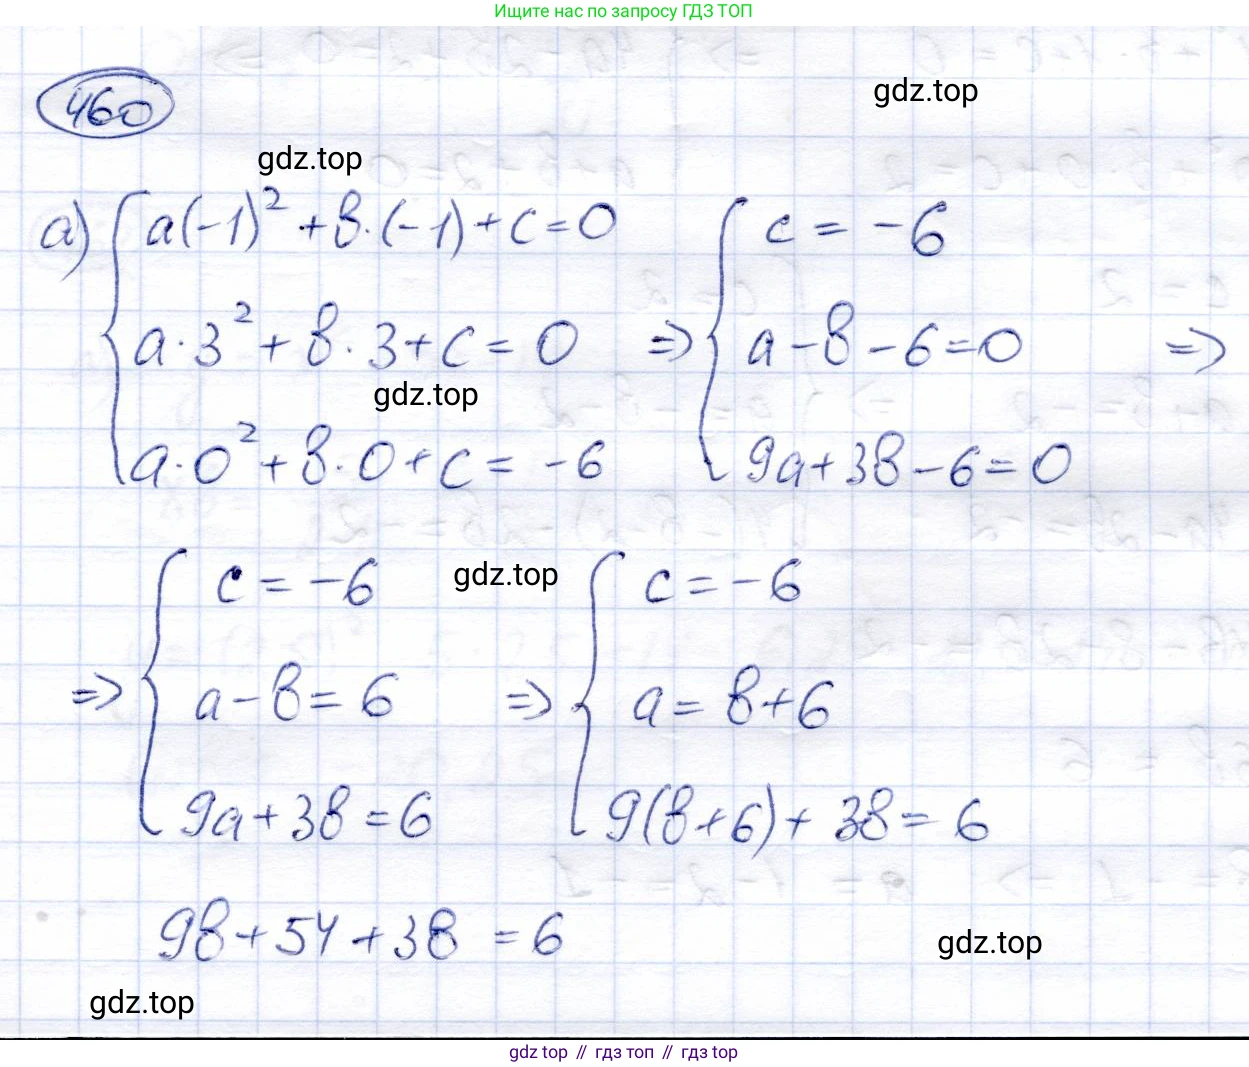 Ищите нас по запросу ГДЗ ТОП
460
gdz.top
gdz.top
а) { a(-1)² + b·(-1) + c = 0
a·3² + b·3 + c = 0
a·0² + b·0 + c = -6
=> { c = -6
a - b - 6 = 0
9a + 3b - 6 = 0
=>
gdz.top
=> { c = -6
a - b = 6
9a + 3b = 6
gdz.top
=> { c = -6
a = b + 6
9(b + 6) + 3b = 6
9b + 54 + 3b = 6
gdz.top
gdz.top
gdz top // гдз топ // гдз top